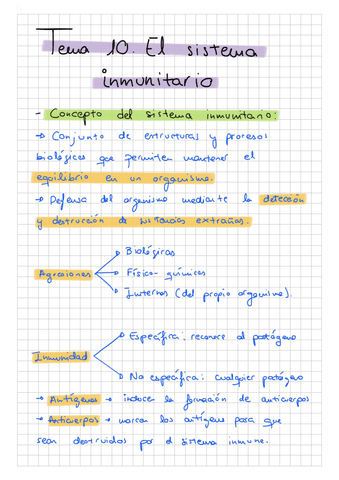 Tema 10. El sistema
inmunitario
- Concepto del sistema inmunitario:
→ Conjunto de estructuras y procesos
biológicos que permiten mantener el
equilibrio en un organismo.
→ Defensa del organismo mediante la detección
y destrucción de sustancias extrañas.
Biológicas
Agresiones
Físico-químicas
Internas (del propio organismo).
Específica: reconoce al patógeno
Inmunidad
No específica: cualquier patógeno
→ Antígenos → induce la formación de anticuerpos
→ Anticuerpos → marcan los antígenos para que
sean destruidos por el sistema inmune.